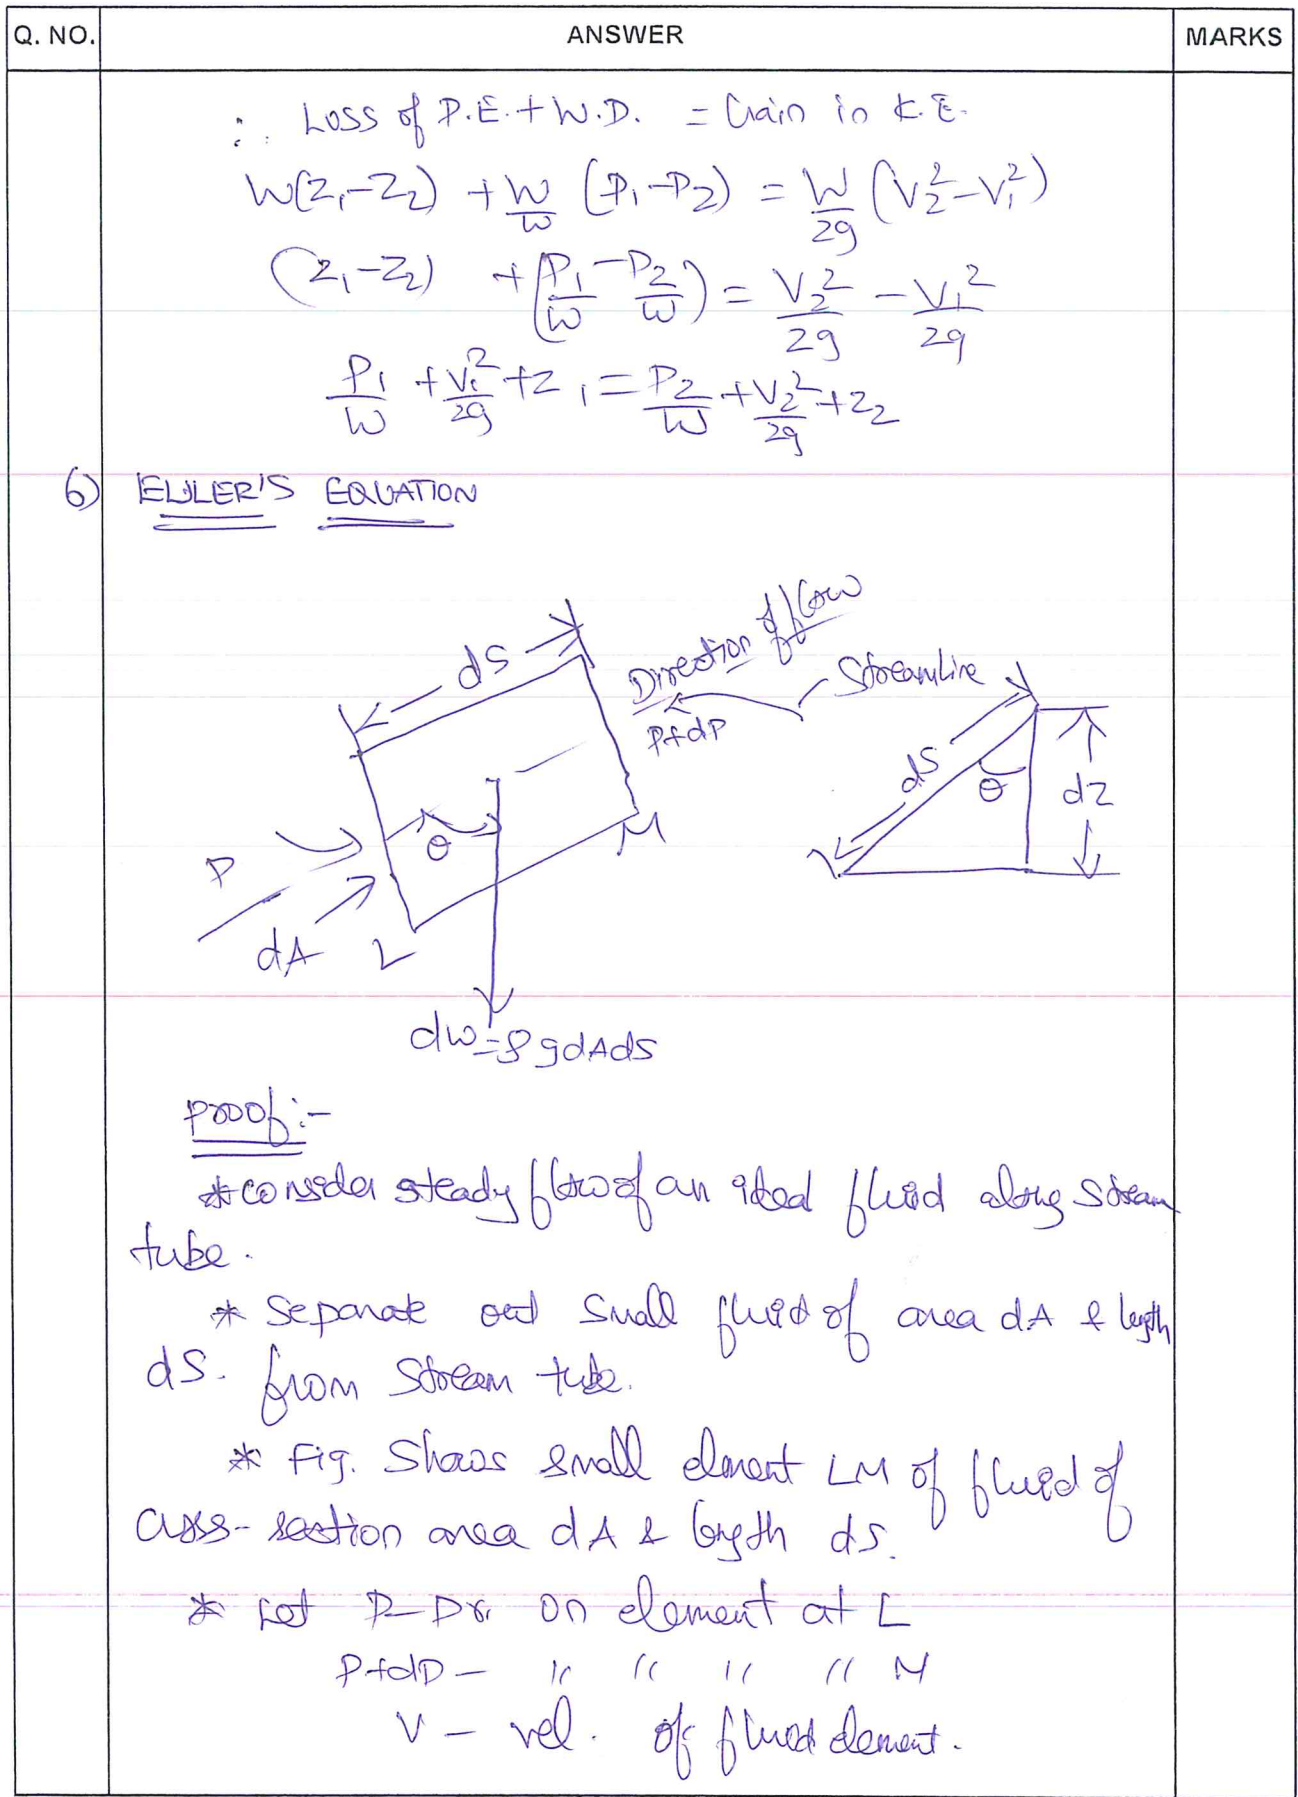 Q. NO. ANSWER MARKS
∴ Loss of P.E. + W.D. = Gain in K.E.
W(Z₁-Z₂) + W/w (P₁-P₂) = W/2g (V₂²-V₁²)
(Z₁-Z₂) + (P₁/w - P₂/w) = V₂²/2g - V₁²/2g
P₁/w + V₁²/2g + Z₁ = P₂/w + V₂²/2g + Z₂
6) EULER'S EQUATION
dS
Direction of flow
Streamline
P+dP
dS
θ
dZ
θ
M
P
dA
L
dw = ρgdAds
Proof:-
* Consider steady flow of an ideal fluid along stream
tube.
* Separate out small fluid of area dA & length
dS. from stream tube.
* Fig. Shows small element LM of fluid of
cross-section area dA & length ds.
* Let P - Pr. on element at L
P+dP - " " " " M
V - vel. of fluid element.